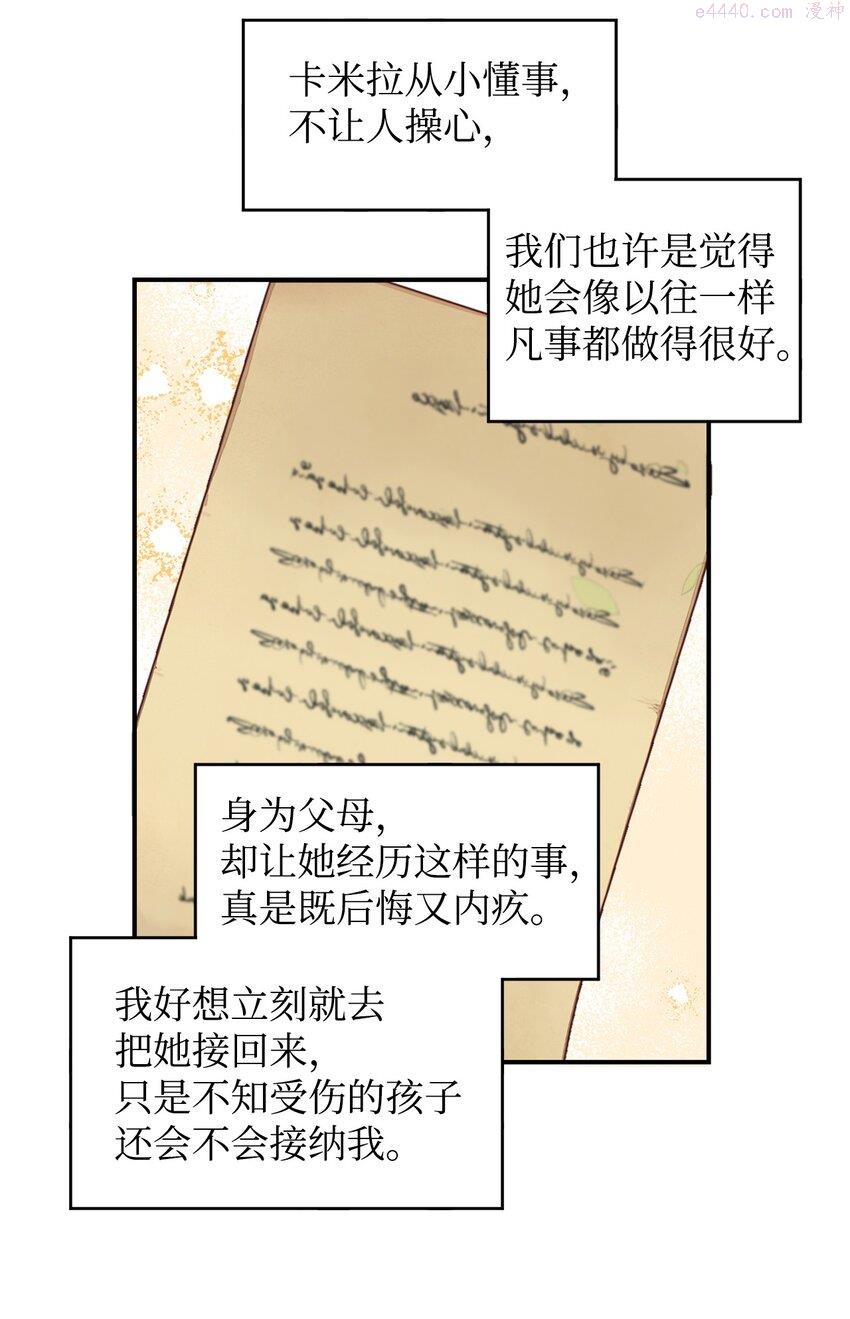 e4440.com 漫神
卡米拉从小懂事，
不让人操心，
我们也许是觉得
她会像以往一样
凡事都做得很好。
身为父母，
却让她经历这样的事，
真是既后悔又内疚。
我好想立刻就去
把她接回来，
只是不知受伤的孩子
还会不会接纳我。